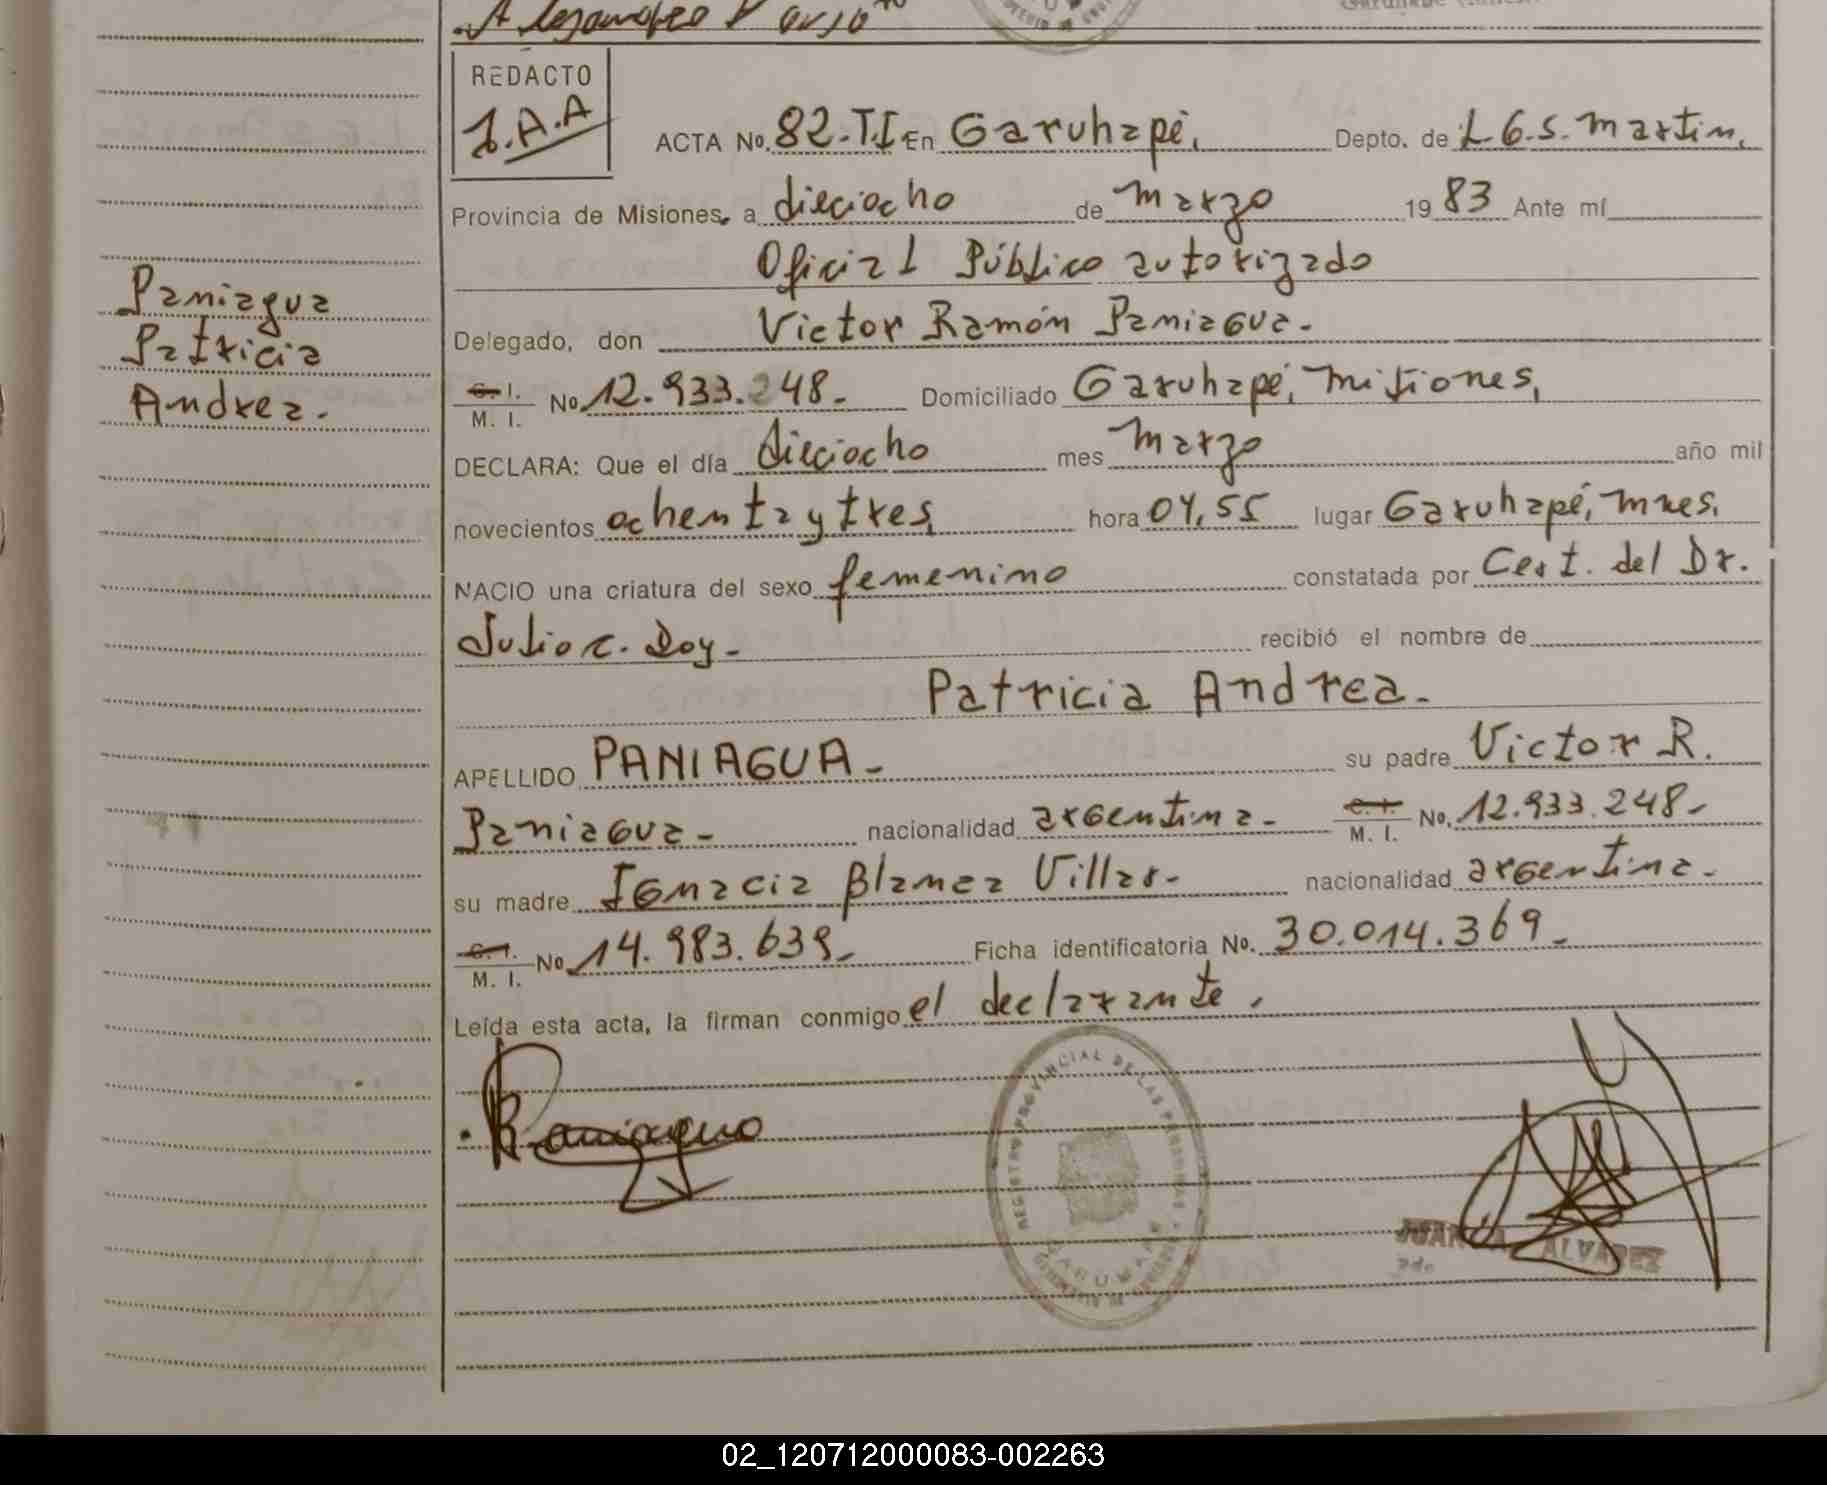 REDACTO
J.A.A
ACTA No. 82-T.I En Garuhapé, Depto. de L.G.S. Martin,
Provincia de Misiones, a dieciocho de marzo 1983 Ante mí
Oficial Público autorizado
Delegado, don Victor Ramón Paniagua.
C. I. M. I. No 12.933.248- Domiciliado Garuhapé, Misiones,
DECLARA: Que el día dieciocho mes marzo año mil
novecientos ochenta y tres, hora 04,55 lugar Garuhapé, Mnes.
NACIO una criatura del sexo femenino constatada por Cert. del Dr.
Julio C. Doy- recibió el nombre de
Patricia Andrea.
APELLIDO PANIAGUA- su padre Victor R.
Paniagua- nacionalidad argentina- C. I. M. I. No. 12.933.248-
su madre Ignacia Blanca Villar- nacionalidad argentina.
C. I. M. I. No 14.983.639- Ficha identificatoria No. 30.014.369-
Leída esta acta, la firman conmigo el declarante.
Paniagua
Patricia
Andrea.
Paniagua
REGISTRO PROVINCIAL DE LAS PERSONAS
JUAN A. ALVAREZ
02_120712000083-002263